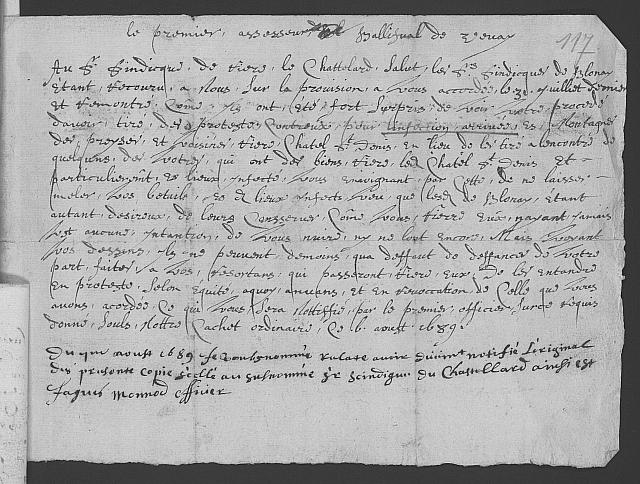 le premier, assesseur, Ballival de Vevay
117
Au Sr Sindicque, de riere, le Chattelard, Salut, les Srs Sindicques de Blonay
Etant, Recouru, a Nous, Sur la provision, a Vous accordée, le 31 Juillet dernier
et Remontré, Come, Ils ont (été) fort Surpris, de Voir, Votre, procédé
davoir, tiré, des proteste, Contreux, pour Linfection, arrivée, Es, Montagnes
des preyses, et Voisines, riere, Chatel St Denis, en lieu de les tiré a lencontre, de
quelquns, des Votres, qui ont des biens, riere, led Chatel St Denis et
particulierem̃t, Es lieux, infecté, Vous enjoignant, par Cette, de ne laisser
mêler, Vos betail, Es d lieux infects, Veu, que lesd de Blonay, étant
autant, desireux, de leurs Consserver, Come, Vous, riere Eux, nayant, Jamais
Eut aucune, Intantion, de Vous nuire, ny ne lont Encore, Mais Voyant
Vos dessins, Ils ne peuvent, demoins, qua deffaut, de deffances, de Votre
part, faites, a Vos, resortans, qui passeront, riere, Eux, de les Entandre
En proteste, Selon, Equité, aquoy, anuans, et En revoccation, de Celle que Vous
avons, acordée, Ce qui, Vous, Sera, Nottiffié, par le premier, officier, Surce requis
donné, Soubs, Nottre, Cachet ordinaire, Ce 6 aoust 1689.
Du que aoust 1689 Je Soubsnommé relate avoir notifié L'original
des presente copie icelle au susnommé Sr Scindique du Chastellard ainsi est
Jaques Monnod officier